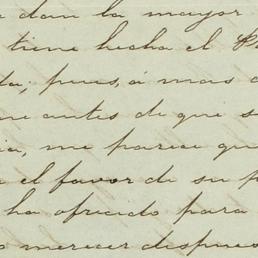 dan la mayor
tiene hecha el
pues, á mas
antes de que
me parece que
el favor de su
ha ofrecido para
merecer despues